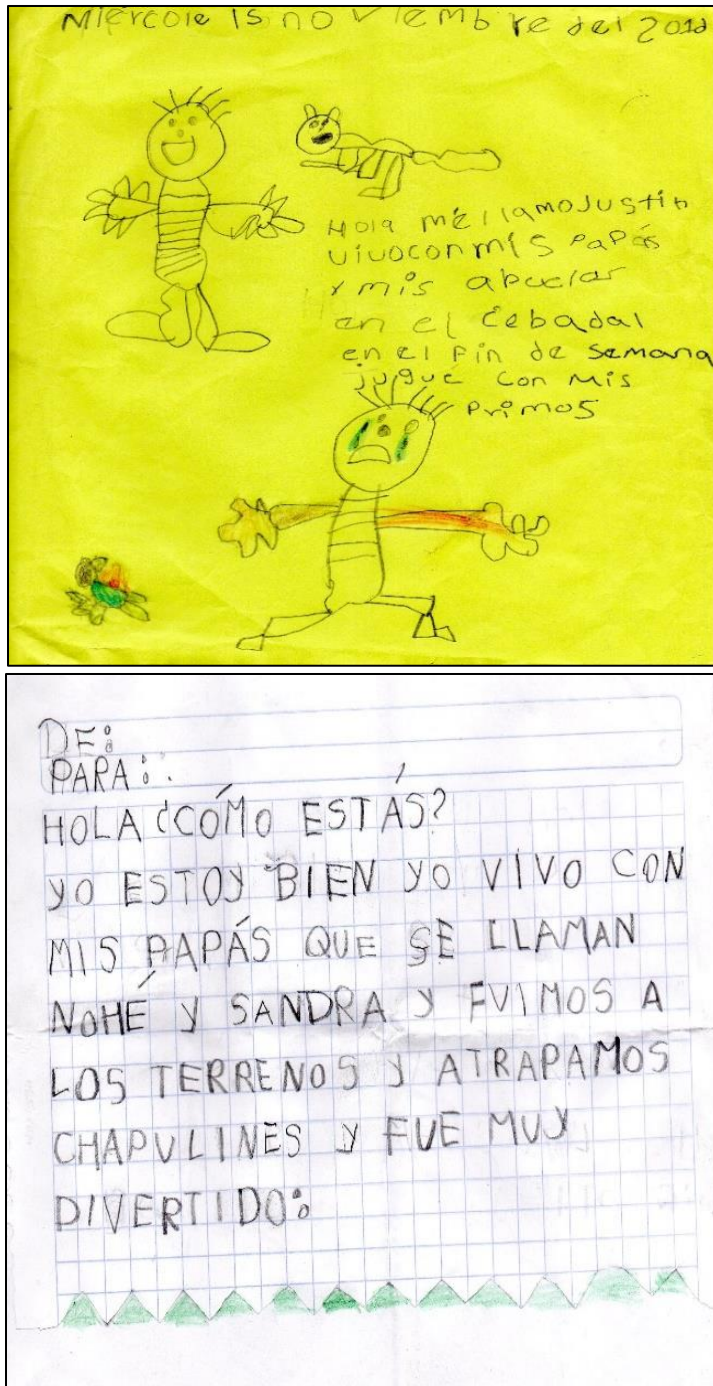 Miércole 15 noviembre del
Hola me llamo Justin
vivo con mis Papás
y mis abuelas
en el Cebadal
en el fin de semana
jugué con mis
Primos
DE:
PARA:.
HOLA ¿CÓMO ESTÁS?
YO ESTOY BIEN YO VIVO CON
MIS PAPÁS QUE SE LLAMAN
NOHÉ Y SANDRA Y FUIMOS A
LOS TERRENOS Y ATRAPAMOS
CHAPULINES Y FUE MUY
DIVERTIDO: